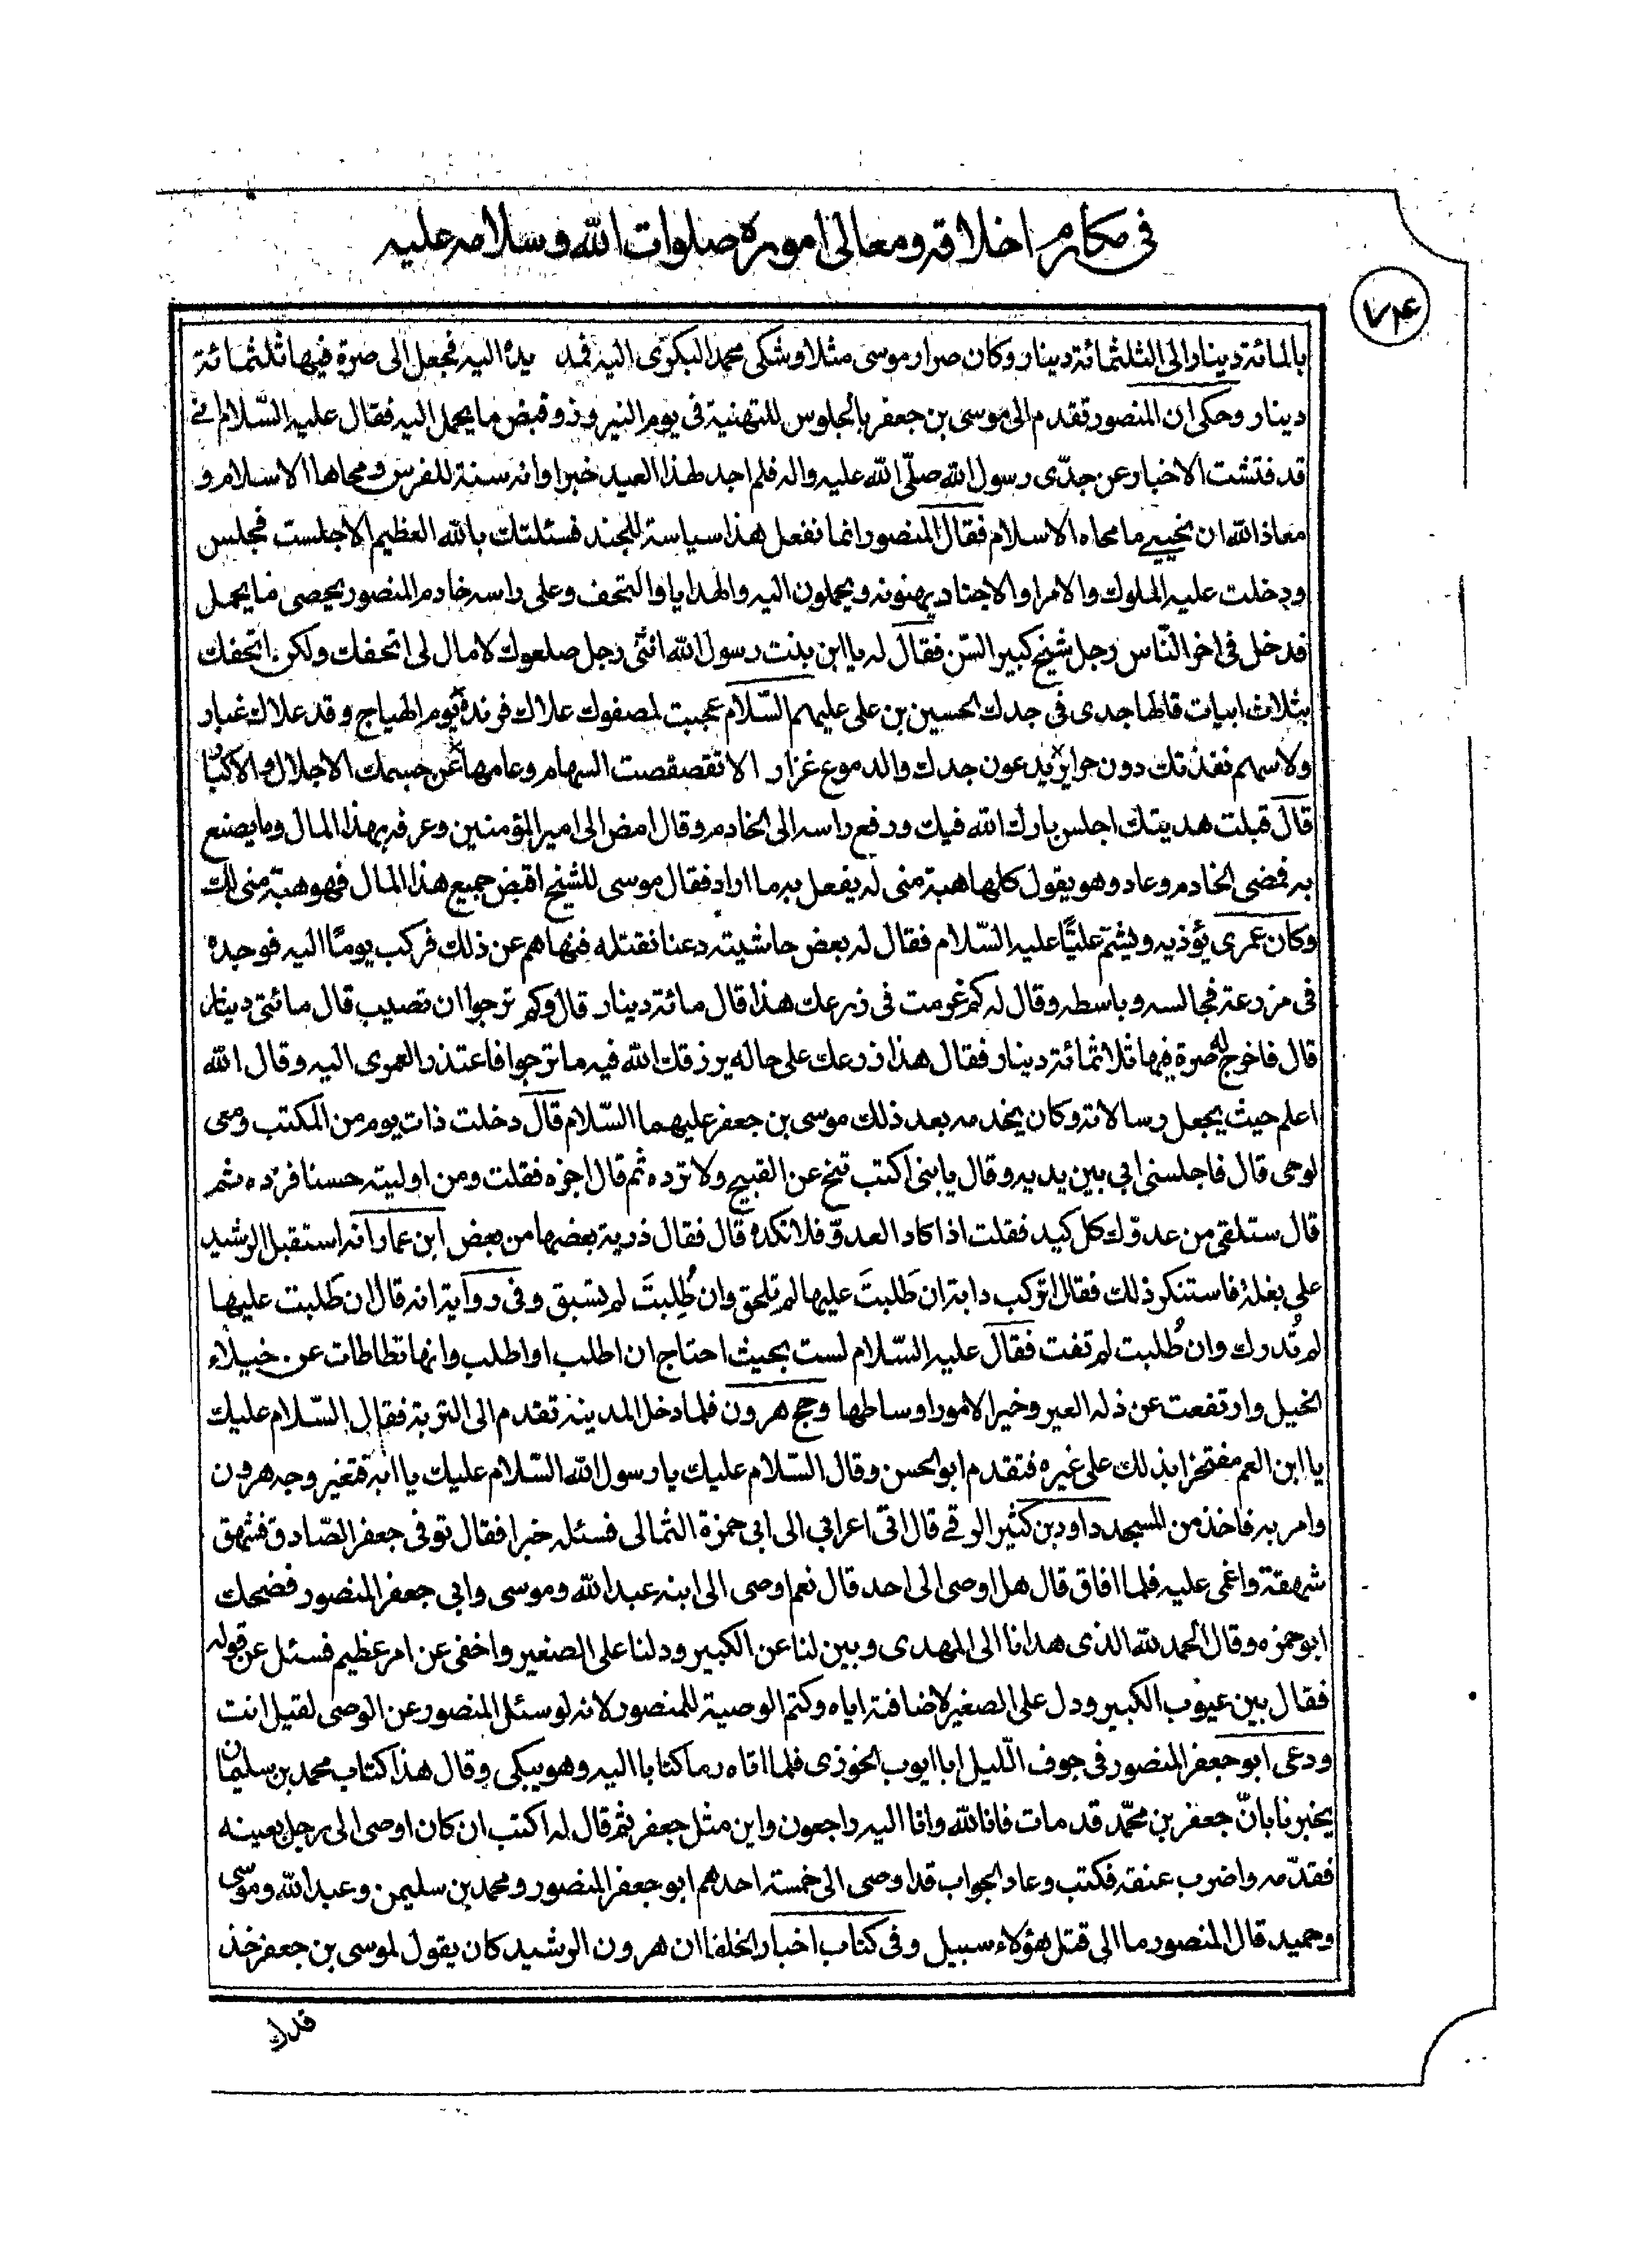 فى مكارم اخلاقه ومعالى اموره صلوات الله وسلامه عليه
٧۴
بالمائة دينار الى الثلثمائة دينار وكان صرار موسى مثلا وشكى محمد البكرى اليه فمد يده اليه فجعل الى صرة فيها ثلثمائة
دينار وحكى ان المنصور تقدم الى موسى بن جعفر بالجلوس للتهنية فى يوم النيروز وقبض ما يحمل اليه فقال عليه السّلام انى
قد فتشت الاخبار عن جدّى رسول الله صلّى الله عليه واله فلم اجد لهذا العيد خبرا وانه سنة للفرس ومحاها الاسلام و
معاذ الله ان نحيى ما محاه الاسلام فقال المنصور انما نفعل هذا سياسة للجند فسئلتك بالله العظيم الا جلست فجلس
ودخلت عليه الملوك والامرا والاجناد يهنونه ويحملون اليه والهدايا والتحف وعلى راسه خادم المنصور يحصى ما يحمل
فدخل فى اخر النّاس رجل شيخ كبير السّن فقال له يا ابن بنت رسول الله انّنى رجل صلعوك لا مال لى اتحفك ولكن اتحفك
بثلاث ابيات قالها جدى فى جدك الحسين بن على عليهم السّلام عجبت لمصقوك علاك فرنده يوم الهياج وقد علاك غبار
ولاسهم نفذتك دون حراير يدعون جدك والدموع غزار الا تقصقصت السهام وعامها عن جسمك الاجلال والاكبار
قال قبلت هديتك اجلس بارك الله فيك ورفع راسه الى الخادم وقال امض الى امير المؤمنين وعرفه بهذا المال وما يصنع
به فمضى الخادم وعاد وهو يقول كلها هبة منى له يفعل به ما اراد فقال موسى للشيخ اقبض جميع هذا المال فهو هبة منى لك
وكان عمرى يؤذيه ويشتم عليًّا عليه السّلام فقال له بعض حاشيته دعنا نقتله فنهاهم عن ذلك فركب يومًا اليه فوجده
فى مزرعة فجالسه وباسطه وقال له كم غرمت فى زرعك هذا قال مائة دينار قال وكم ترجوا ان تصيب قال مائتى دينار
قال فاخرج له صرة فيها ثلاثمائة دينار فقال هذا زرعك على حاله يرزقك الله فيه ما ترجوا فاعتذر العمرى اليه وقال الله
اعلم حيث يجعل رسالاته وكان يخدمه بعد ذلك موسى بن جعفر عليهما السّلام قال دخلت ذات يوم من المكتب ومعى
لوحى قال فاجلسنى ابى بين يديه وقال يا بنى اكتب تنح عن القبيح ولا ترده ثم قال اجزه فقلت ومن اوليته حسنا فزده ثم
قال ستلقى من عدوّك كل كيد فقلت اذا كاد العدوّ فلا تكده قال فقال ذرية بعضها من بعض ابن عمار انه استقبل الرشيد
على بغلة فاستنكر ذلك فقال اتركب دابة ان طَلبتَ عليها لم تلحق وان طُلِبتَ لم تسبق وفى رواية انه قال ان طَلبت عليها
لم تُدرك وان طُلبت لم تفت فقال عليه السّلام لست بحيث احتاج ان اطلب او اطلب وانها تطاطات عن خيلاء
الخيل وارتفعت عن ذله العير وخير الامور اوساطها وحج هرون فلما دخل المدينة تقدم الى التربة فقال السّلام عليك
يا ابن العم مفتخرا بذلك على غيره فتقدم ابو الحسن وقال السّلام عليك يا رسول الله السّلام عليك يا ابه فتغير وجه هرون
وامر به فاخذ من المسجد داود بن كثير الرقى قال اتى اعرابى الى ابى حمزة الثمالى فسئله خبرا فقال توفى جعفر الصّادق فشهق
شهقة واغمى عليه فلما افاق قال هل اوصى الى احد قال نعم اوصى الى ابنه عبد الله وموسى وابى جعفر المنصور فضحك
ابو حمزه وقال الحمد لله الذى هدانا الى المهدى وبين لنا عن الكبير ودلنا على الصغير واخفى عن امر عظيم فسئل عن قوله
فقال بين عيوب الكبير ودل على الصغير لاضافته اياه وكتم الوصية للمنصور لانه لو سئل المنصور عن الوصى لقيل انت
ودعى ابو جعفر المنصور فى جوف الّليل ابا ايوب الخوزى فلما اتاه رما كتابا اليه وهو يبكى وقال هذا كتاب محمد بن سليمان
يخبرنا بانّ جعفر بن محمّد قد مات فانا لله وانا اليه راجعون واين مثل جعفر ثم قال له اكتب ان كان اوصى الى رجل بعينه
فقدّمه واضرب عنقه فكتب وعاد الجواب قد اوصى الى خمسة احدهم ابو جعفر المنصور ومحمد بن سليمن وعبد الله وموسى
وحميد قال المنصور ما الى قتل هؤلاء سبيل وفى كتاب اخبار الخلفا ان هرون الرشيد كان يقول لموسى بن جعفر خذ
فدك